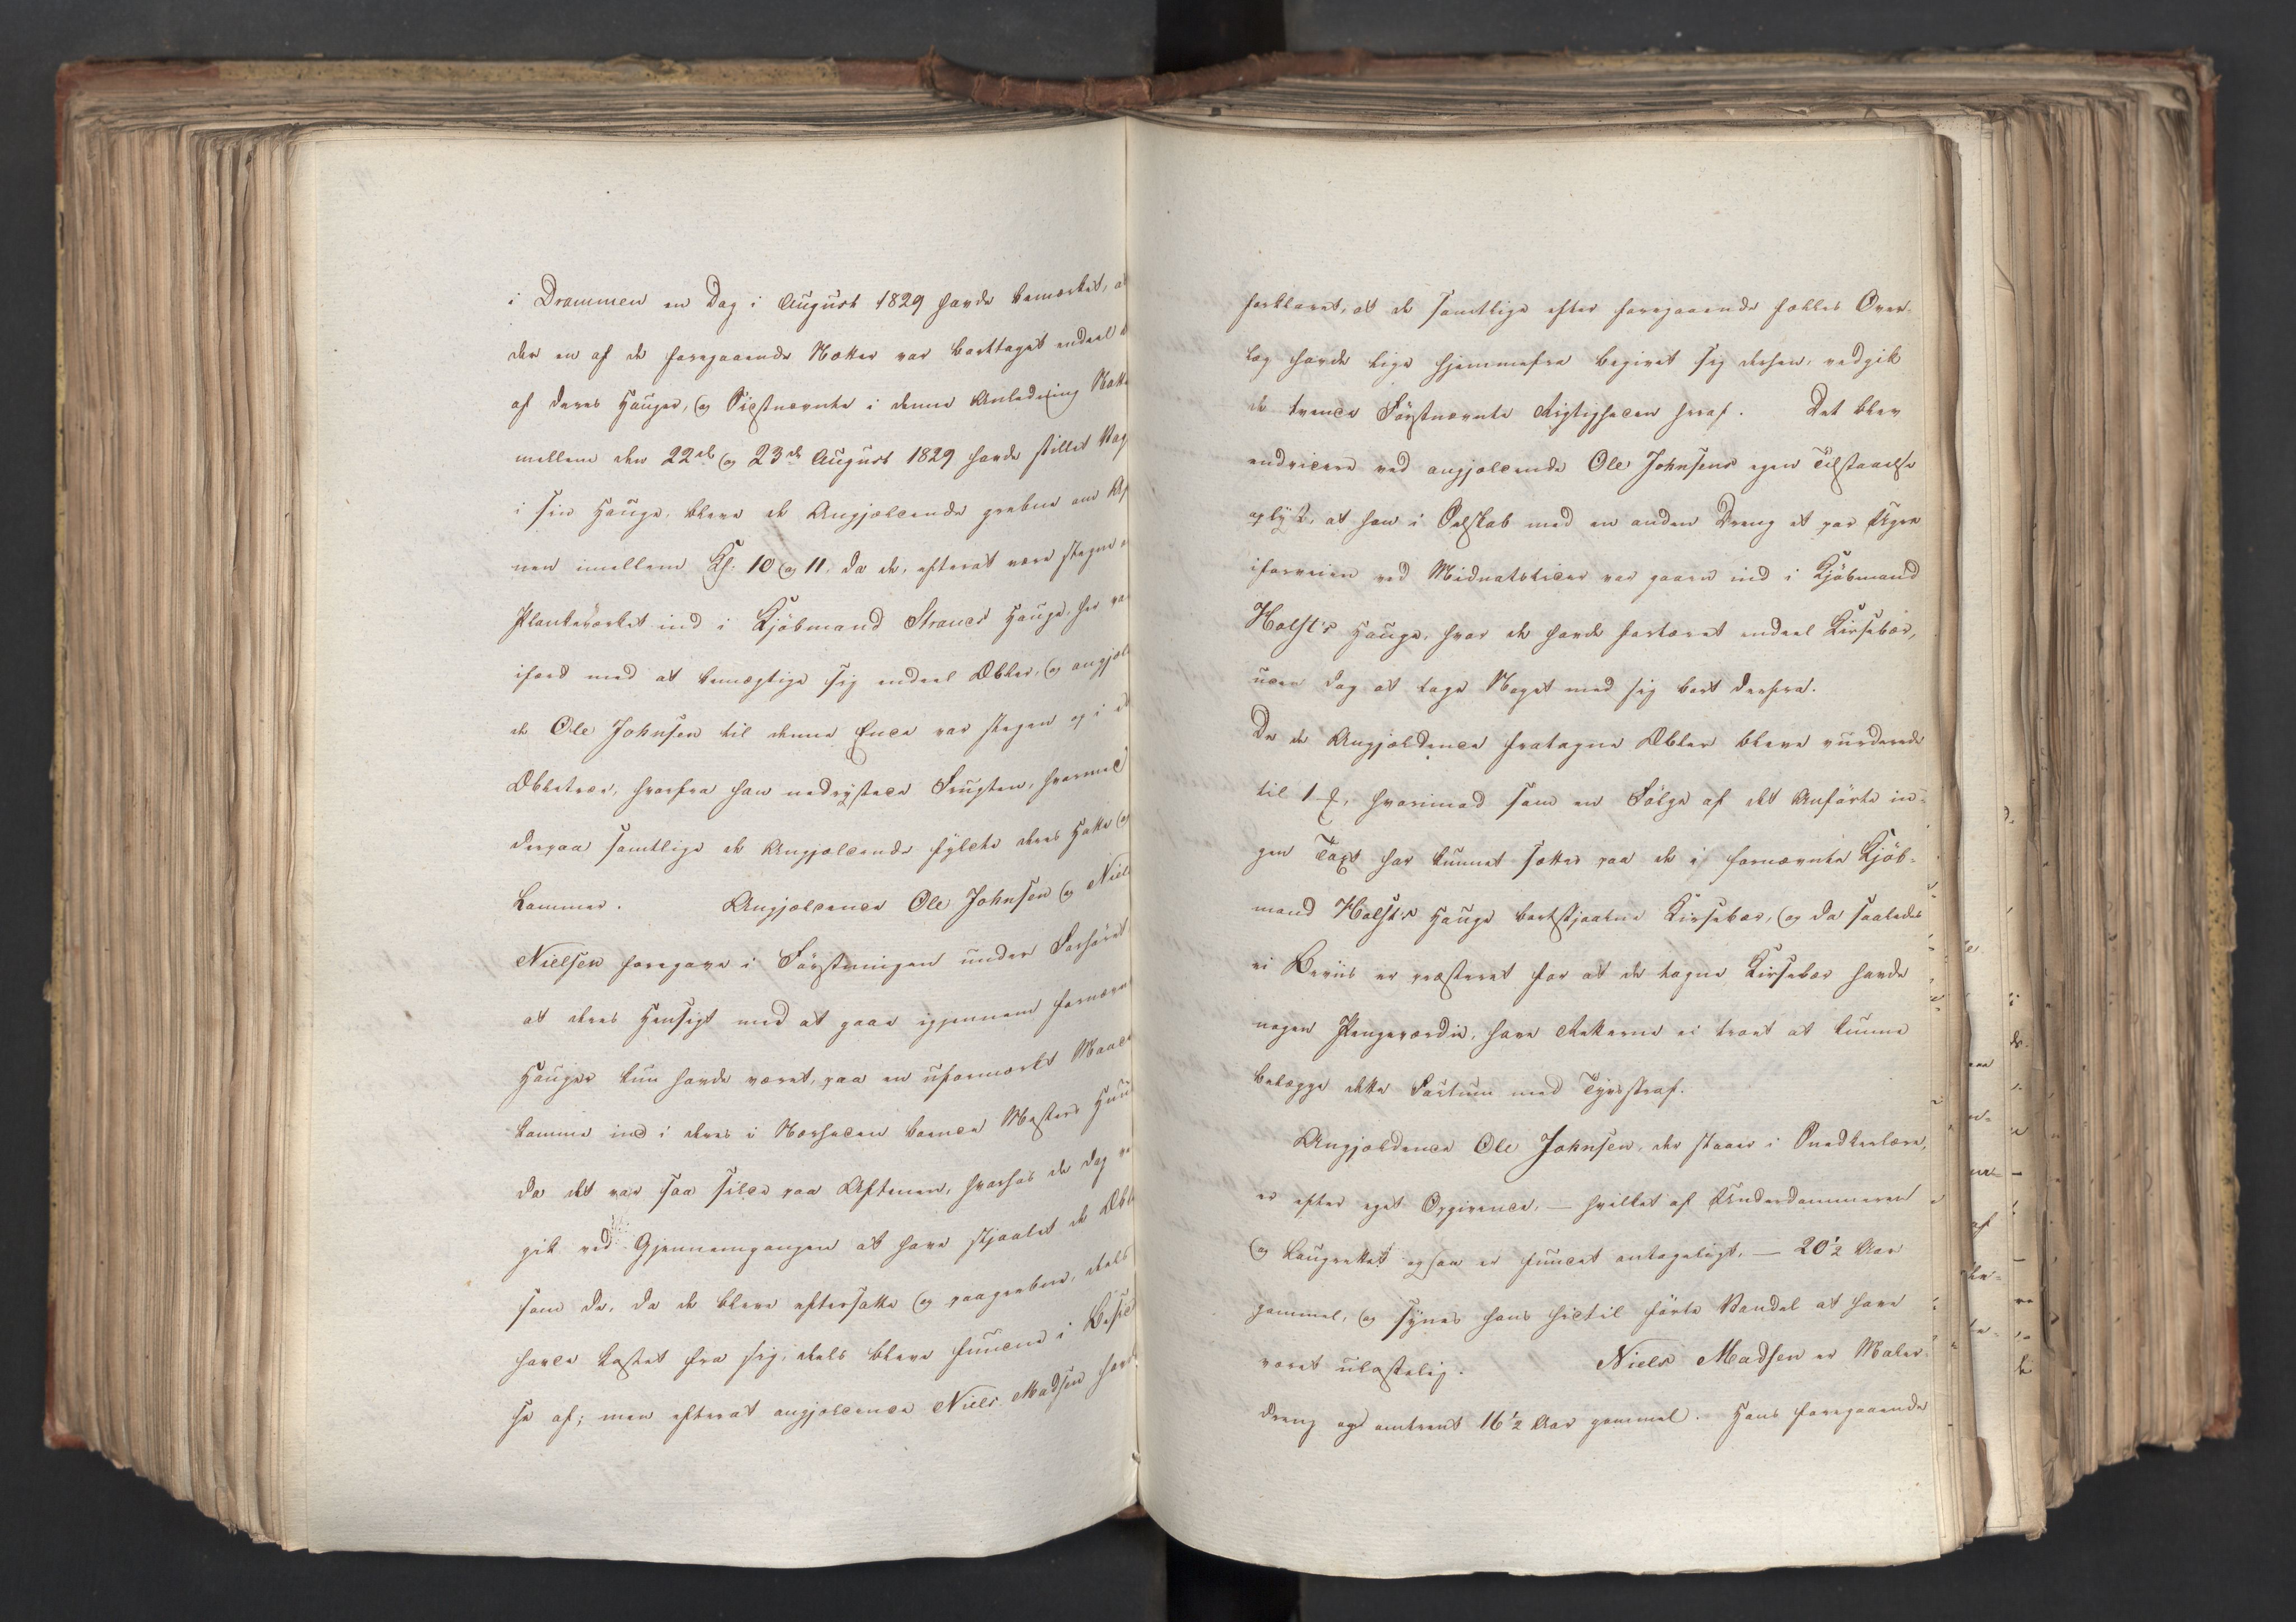 i Drammen en Dag i August 1829 havde bemærket, at
der en af de foregaaende Nætter var borttaget endeel
af deres Hauger, og Sidstnævnte i denne Anledning Natte
mellem den 22de og 23de August 1829 havde stillet Vag
i sin Hauge, bleve de Angjældende grebne om Af
nen imellem Kl: 10 og 11, da de, efterat være stegne
Plankeværket ind i Kjöbmand Strands Hauge, her va
ifærd med at bemægtige sig endeel Æbler, og angjæl
de Ole Johnsen til denne Ende var stegen op i et
Æbletræe, hvorfra han nedrystede Frugten, hvormed
derpaa samtlige de Angjældende fyldte deres Hatte og
Lommer. Angjældende Ole Johnsen og Niels
Nielsen foregave i Förstningen under Forhöret
at deres Hensigt med at gaae igjennem fornævn
Hauger kun havde været, paa en uformærkt Maade
komme ind i deres i Nærheden boende Mesters Huus
da det var saa silde paa Aftenen, hvorhos de dog ve
gik ved Gjennemgangen at have stjaalet de Æbl
som de, da de bleve eftersatte og paagrebne, deels
havde kastet fra sig, deels bleve fundne i Besid
se af; men efterat angjældende Niels Madsen havd
forklaret, at de samtlige efter foregaaende fælles Over-
læg havde lige hjemmefra begivet sig derhen, vedgik
de tvende Förstnævnte Rigtigheden heraf. Det blev
endvidere ved angjældende Ole Johnsens egen Tilstaaelse
oplyst, at han i Selskab med en anden Dreng et par Uger
iforveien ved Midnatstider var gaaen ind i Kjöbmand
Holst's Hauge, hvor de havde fortæret endeel Kirsebær,
uden dog at tage Noget med sig bort derfra.
De de Angjældende fratagne Æbler bleve vurderede
til 1 ß, hvorimod som en Fölge af det Anförte in-
gen Taxt har kunnet sættes paa de i fornævnte Kjöb-
mand Holst's Hauge bortstjaalne Kirsebær, og da saaledes
ei Beviis er præsteret for at de tagne Kirsebær havde
nogen Pengeværdie, have Retterne ei troet at kunne
belægge dette Factum med Tyvsstraf.
Angjældende Ole Johnsen, der staaer i Snedkerlære,
er efter eget Opgivende, — hvilket af Underdommeren
og Laugrettet ogsaa er fundet antageligt, — 20 1/2 Aar
gammel, og synes hans hidtil förte Vandel at have
været ulastelig. Niels Madsen er Maler-
dreng og omtrent 16 1/2 Aar gammel. Hans foregaaende